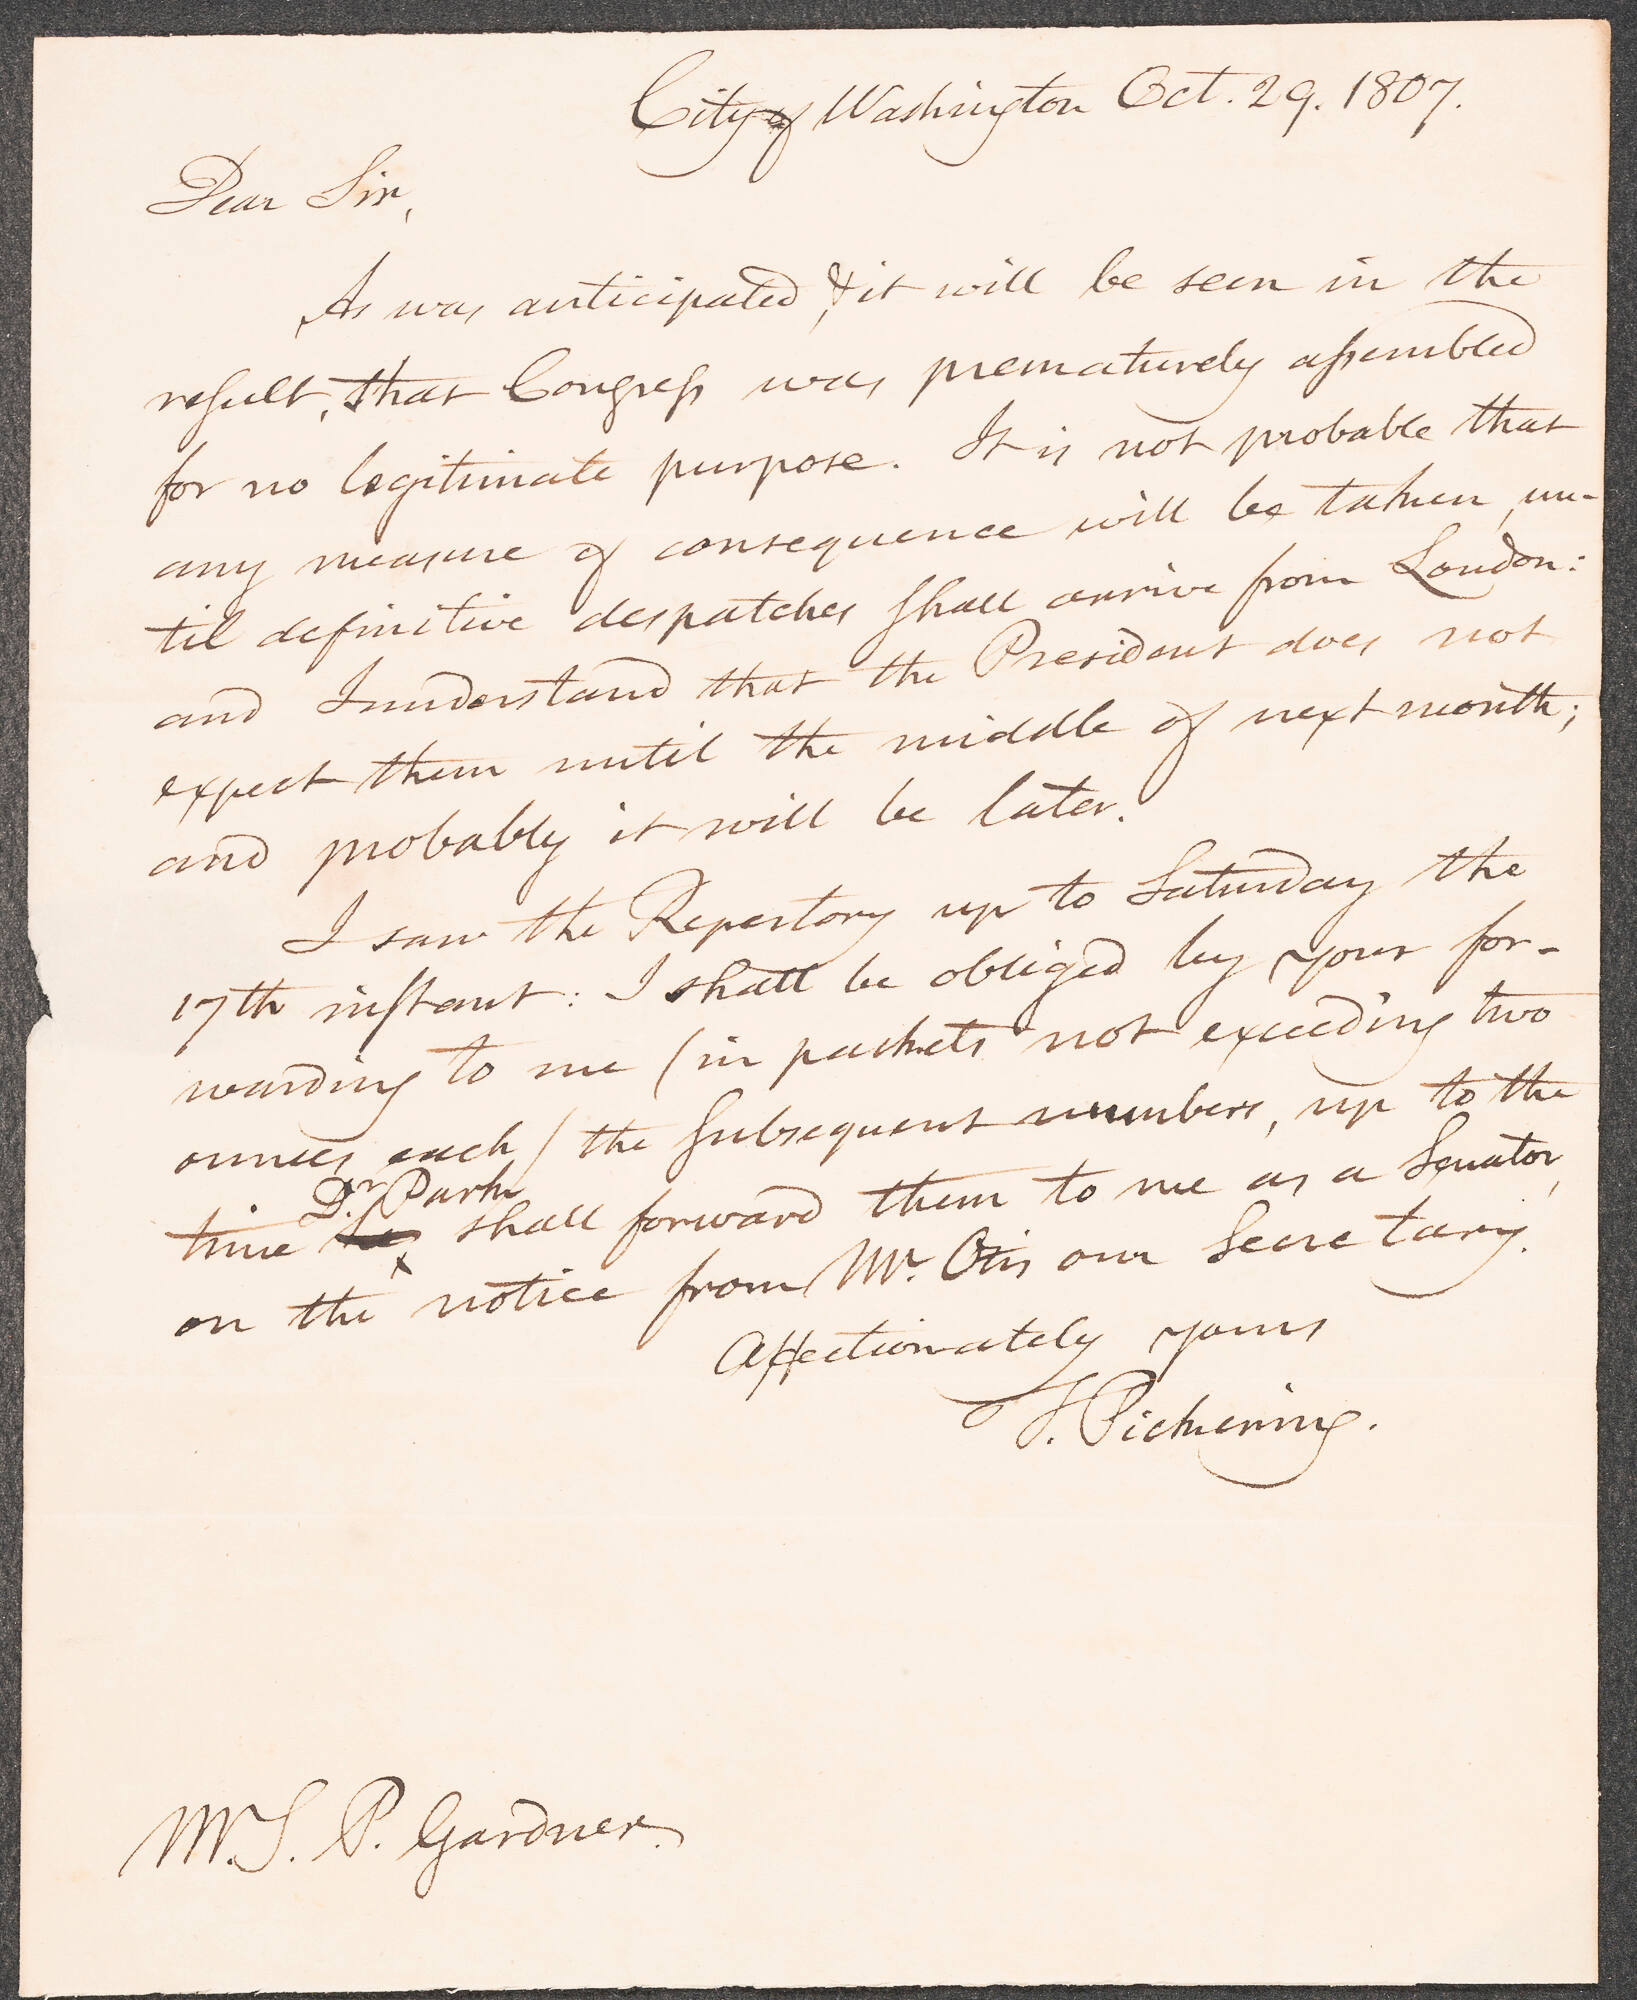 City of Washington Oct. 29. 1807.
Dear Sir,
As was anticipated, & it will be seen in the
result, that Congress was prematurely assembled
for no legitimate purpose. It is not probable that
any measure of consequence will be taken, un-
til definitive despatches shall arrive from London:
and I understand that the President does not
expect them until the middle of next month;
and probably it will be later.
I saw the Repertory up to Saturday the
17th instant: I shall be obliged by your for-
warding to me (in packets not exceeding two
ounces each) the subsequent numbers, up to the
Dr. Park
time he shall forward them to me as a Senator,
on the notice from Mr. Otis our Secretary.
Affectionately yours
T. Pickering.
Mr. S. P. Gardner.